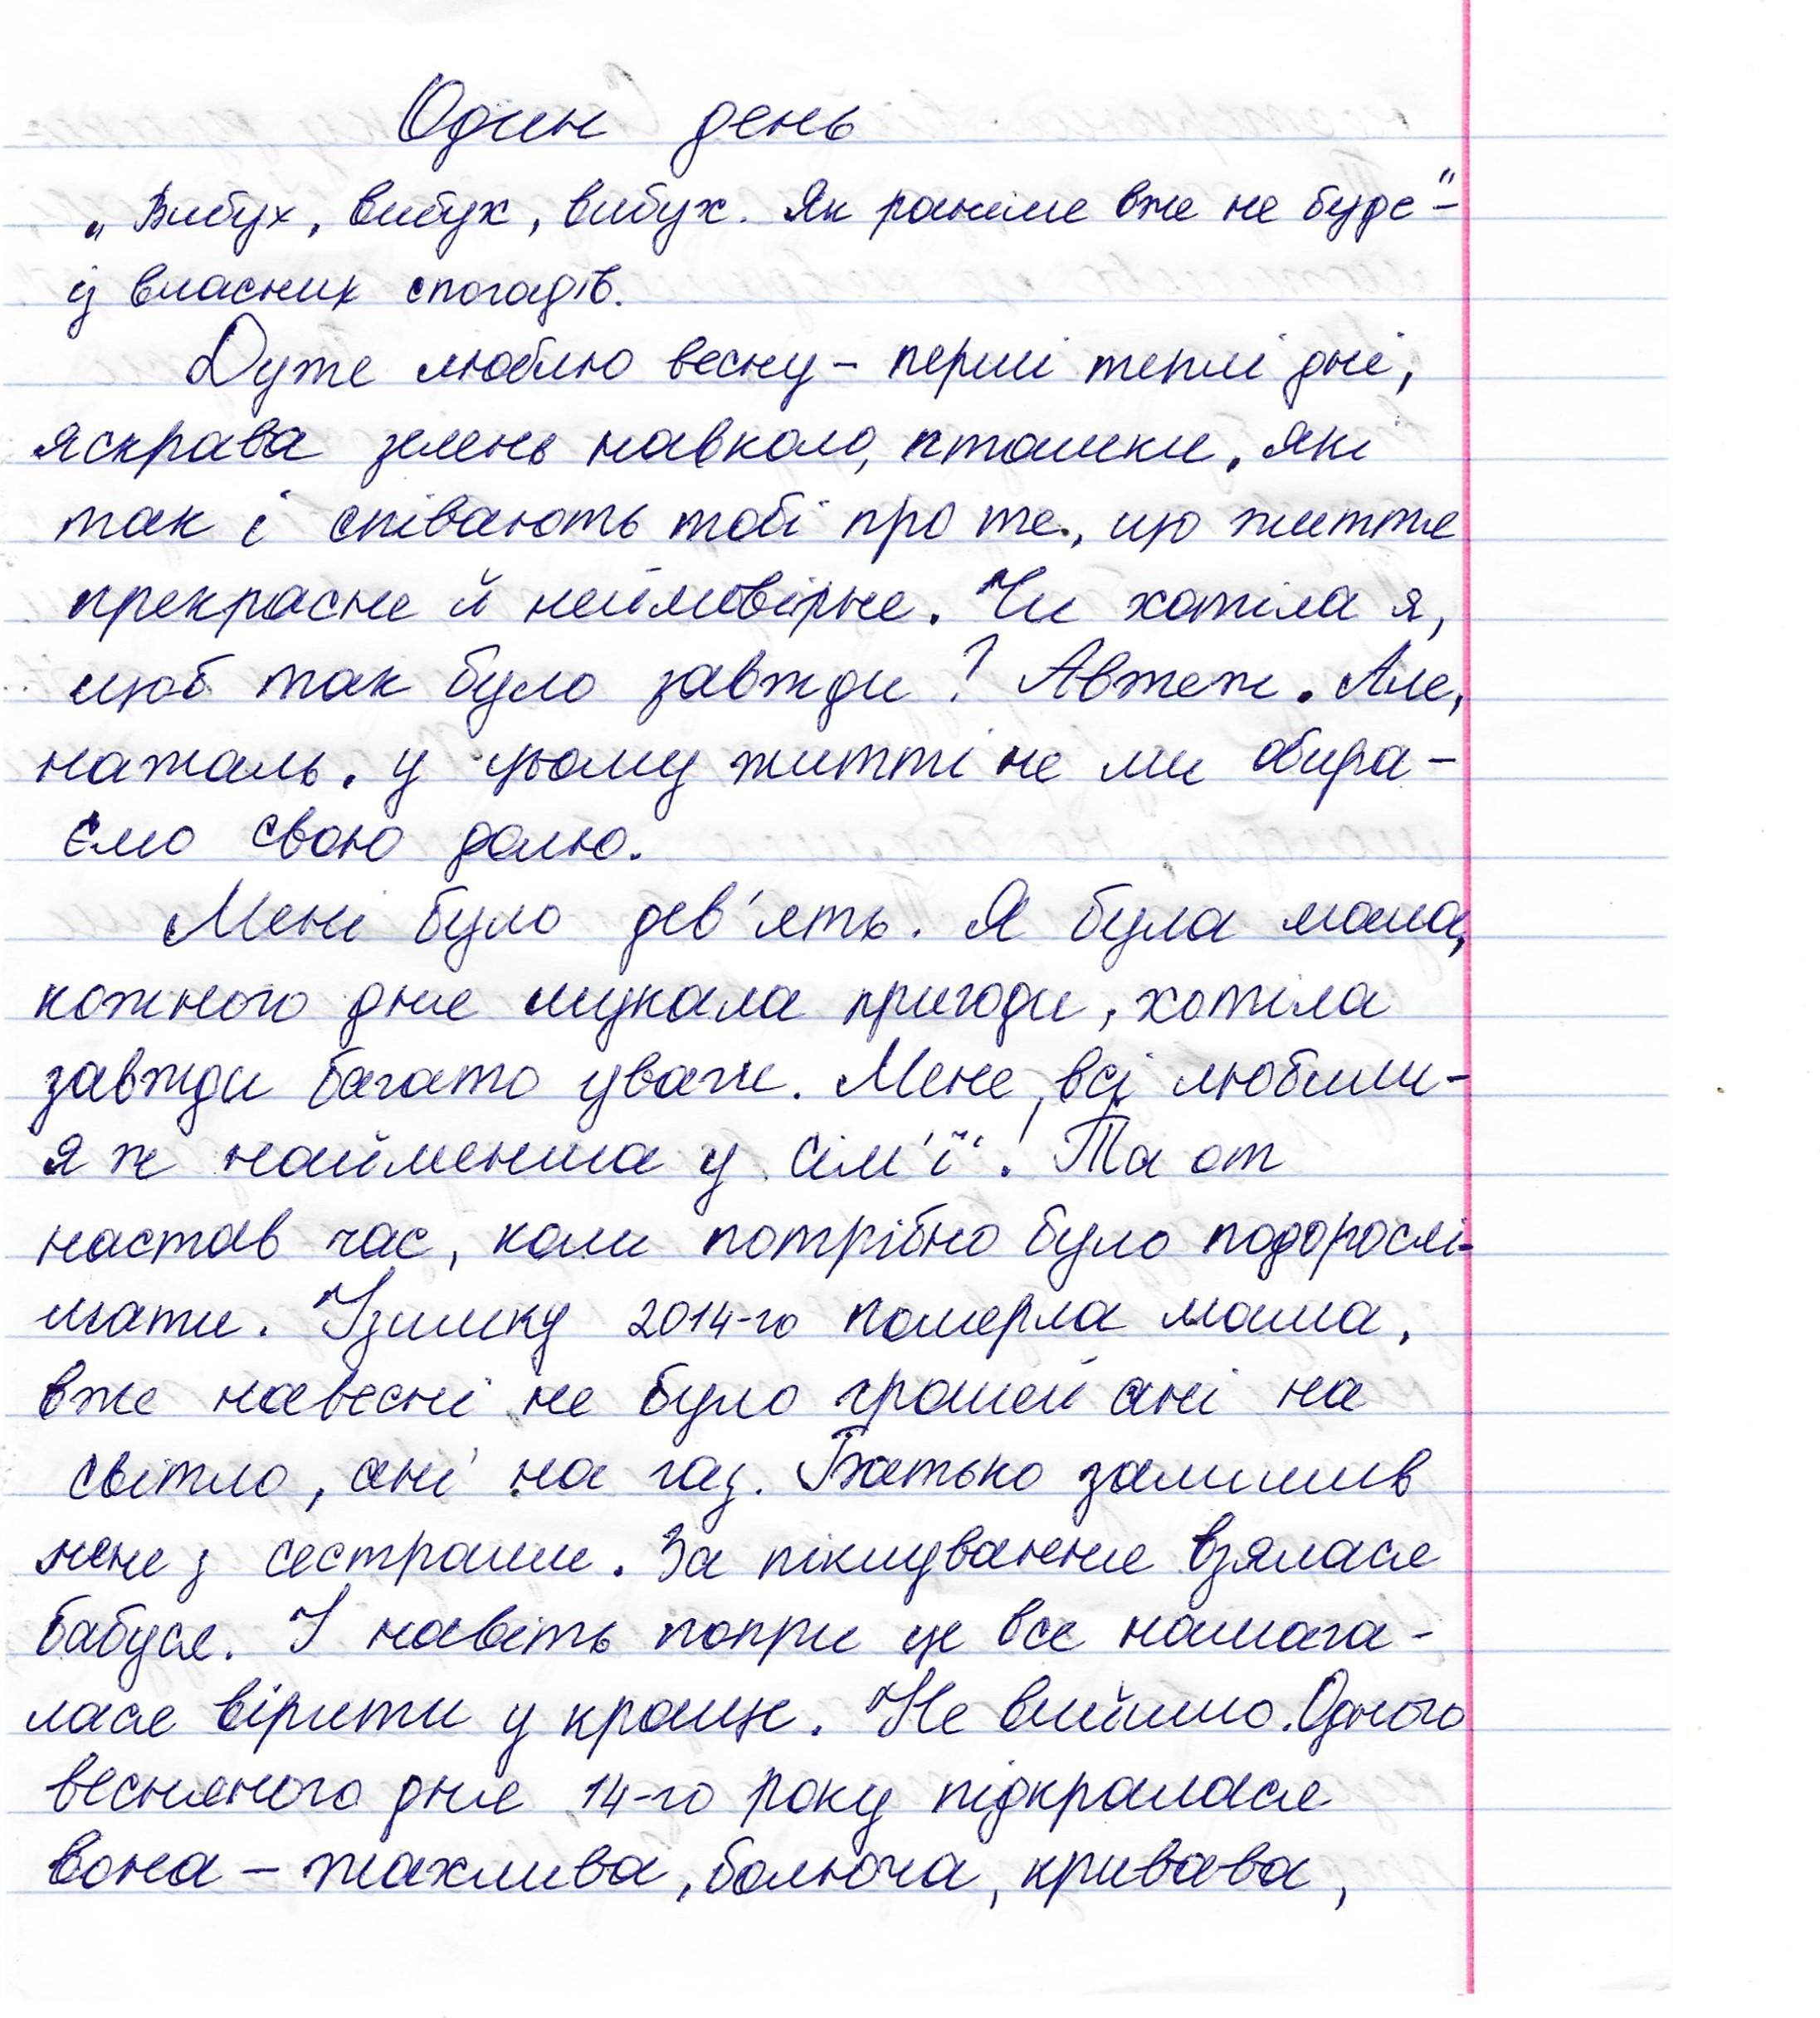 Один день
„Вибух, вибух, вибух. Як раніше вже не буде" –
із власних спогадів.
Дуже люблю весну – перші теплі дні,
яскрава зелень навколо, пташки, які
так і співають тобі про те, що життя
прекрасне й неймовірне. Чи хотіла я,
щоб так було завжди? Авжеж. Але,
нажаль, у цьому житті не ми обира-
ємо свою долю.
Мені було дев'ять. Я була мала,
кожного дня шукала пригоди, хотіла
завжди багато уваги. Мене всі любили –
я ж найменша у сім'ї! Та от
настав час, коли потрібно було подорослі-
шати. Узимку 2014-го померла мама,
вже навесні не було грошей ані на
світло, ані на газ. Батько залишив
мене з сестрами. За піклування взялася
бабуся. І навіть попри це все намага-
лася вірити у краще. Не вийшло. Одного
весняного дня 14-го року підкралася
вона – жахлива, болюча, кривава,